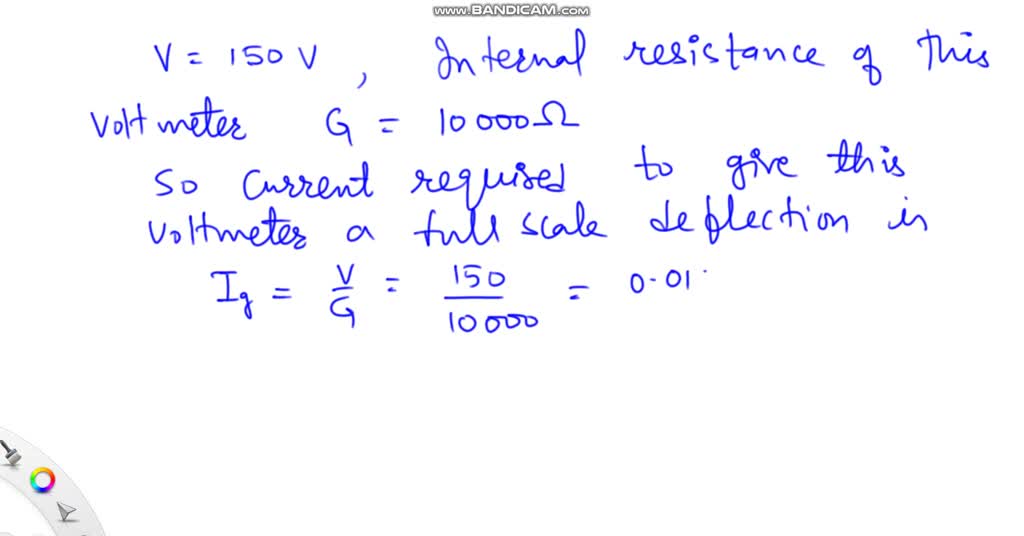 www.BANDICAM.com
V = 150 V , Internal resistance of this
voltmeter G = 10000Ω
So current required to give this
voltmeter a full scale deflection is
Ig = V/G = 150/10000 = 0.01